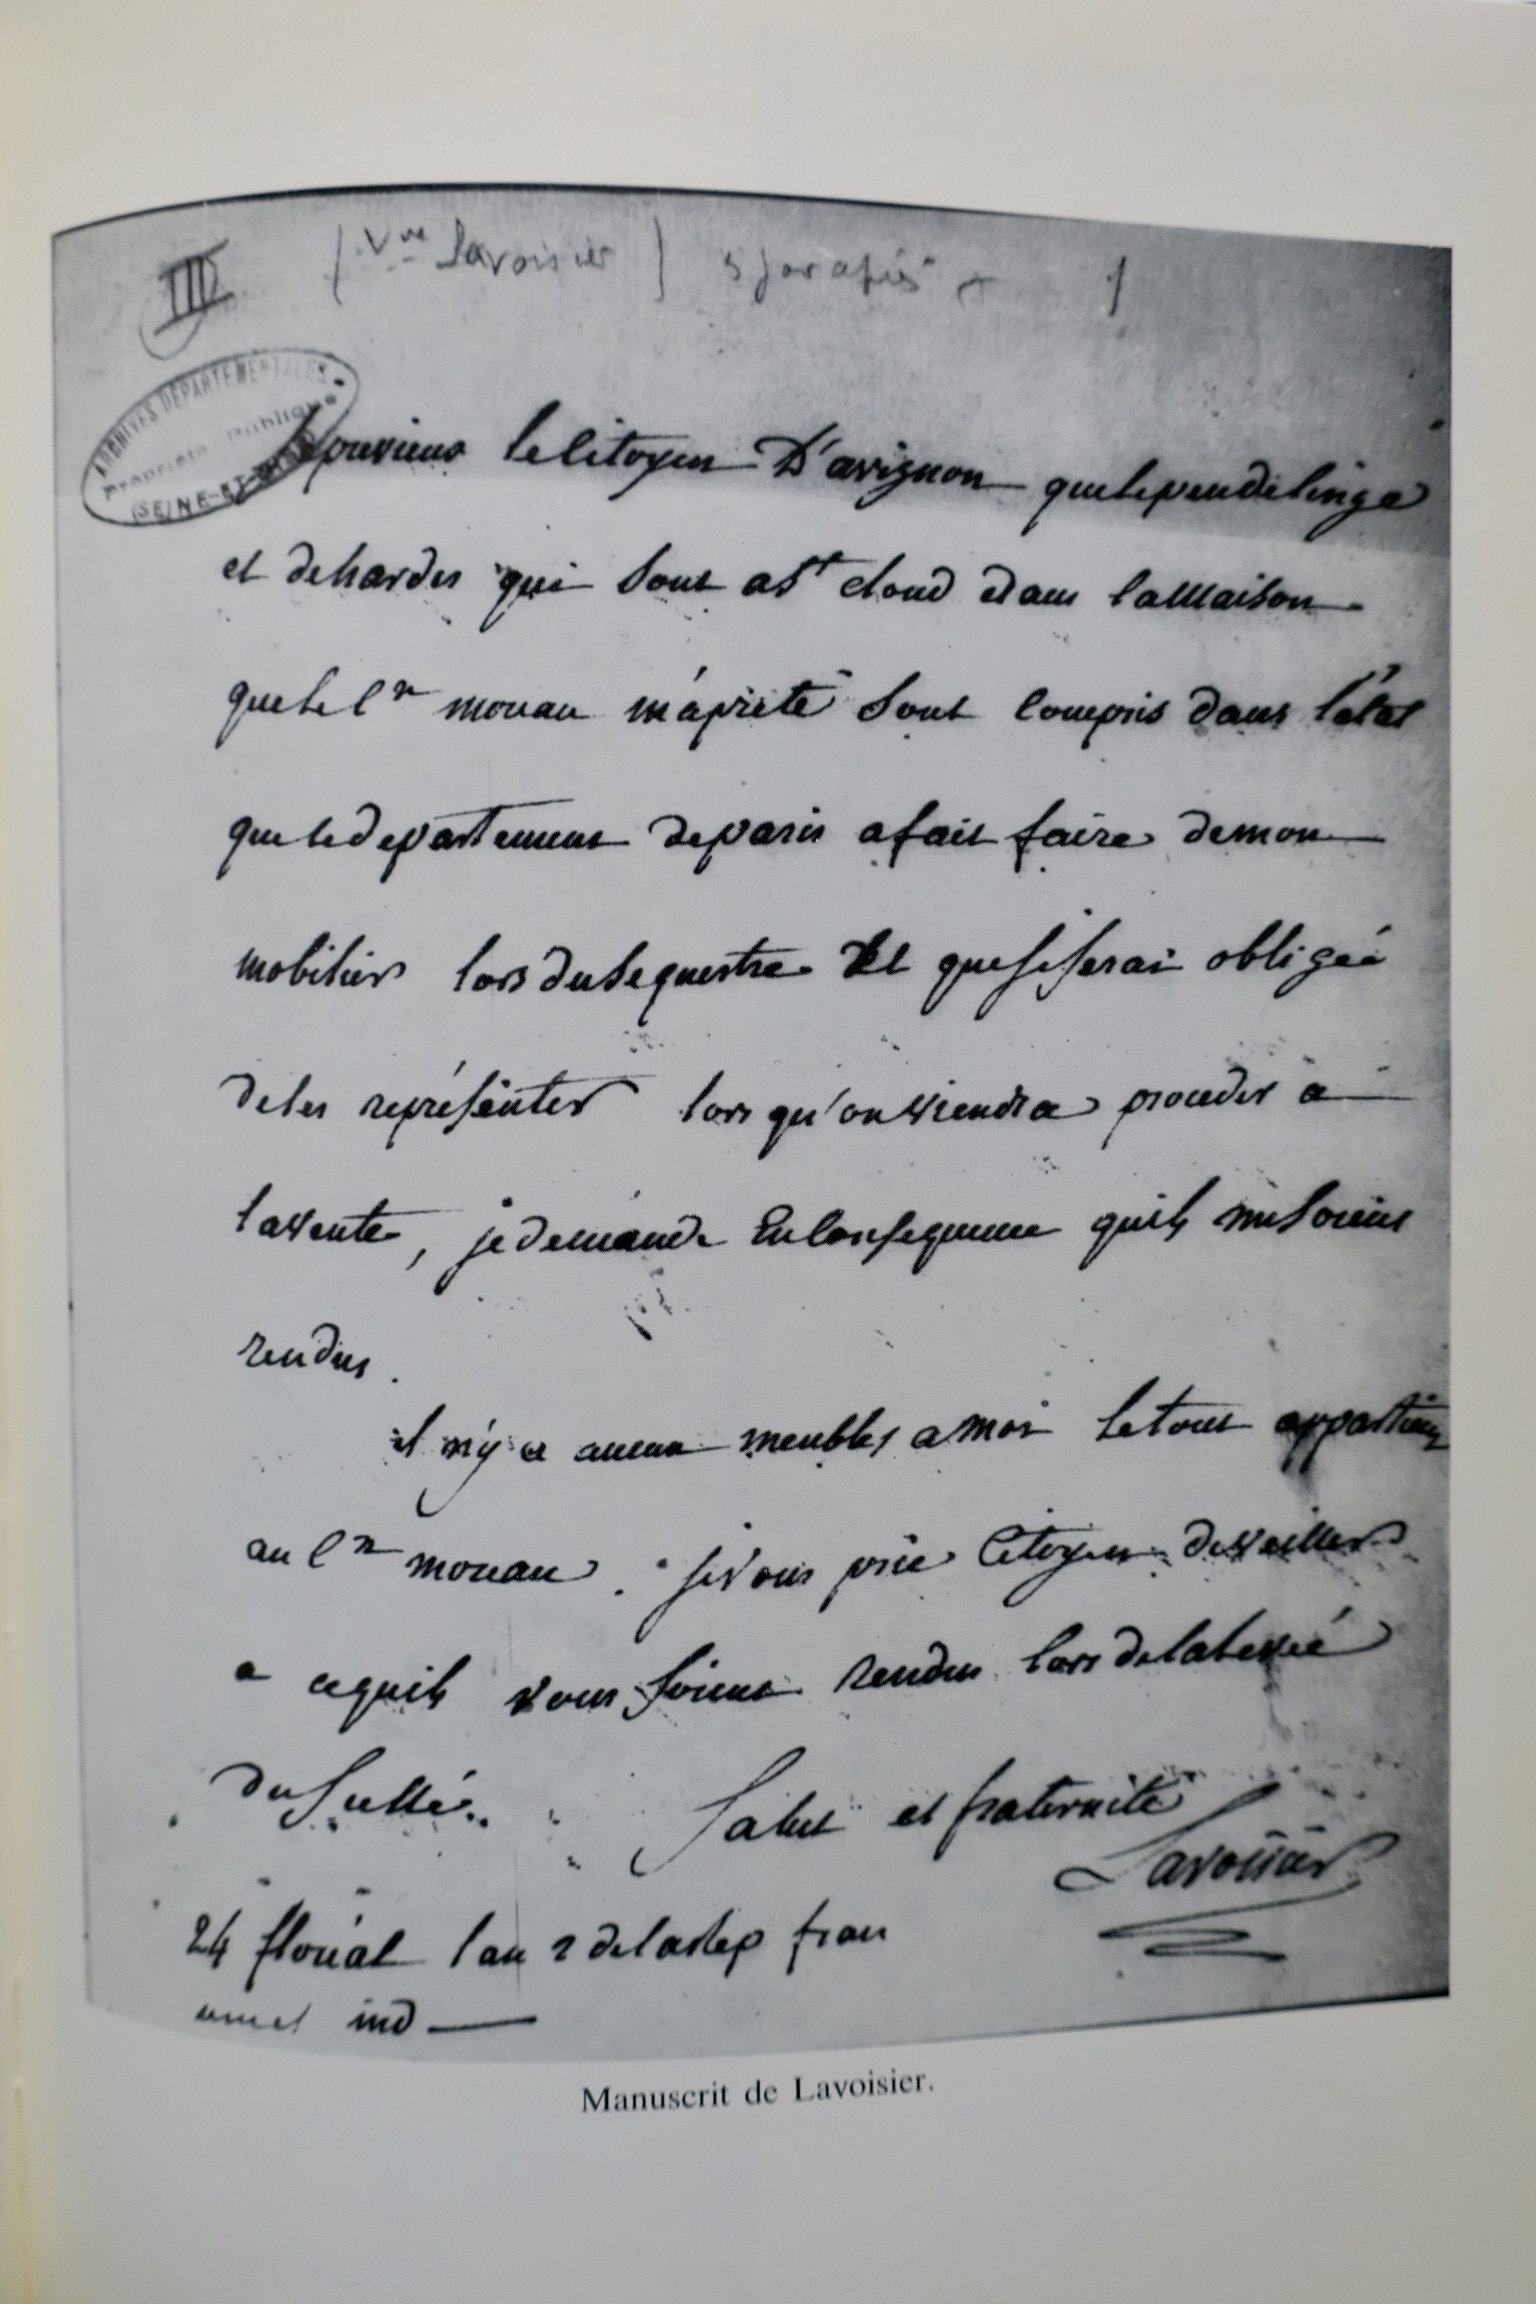 III (Vve Lavoisier) 5 parafes + 1
ARCHIVES DÉPARTEMENTALES
Propriété Publique
(SEINE-ET-OISE)
Je previens le Citoyen D'avignon que le peu de linge
et de hardes qui sont a St cloud dans la Maison
que le Cn mouan m'a preté sont compris dans l'etat
que le departement de paris a fait faire de mon
mobilier lors du sequestre Et que je serai obligée
de les représenter lors qu'on viendra proceder a
la vente, je demande En Consequence quils me soient
rendus.
il n'y a aucun meubles a moi le tout appartient
au Cn mouan. je vous prie Citoyen de veiller
a ce quils vous soient rendus lors de la levée
du scellé. Salut et fraternité
Lavoisier
24 floréal l'an 2 de la rep fran
une et ind
Manuscrit de Lavoisier.